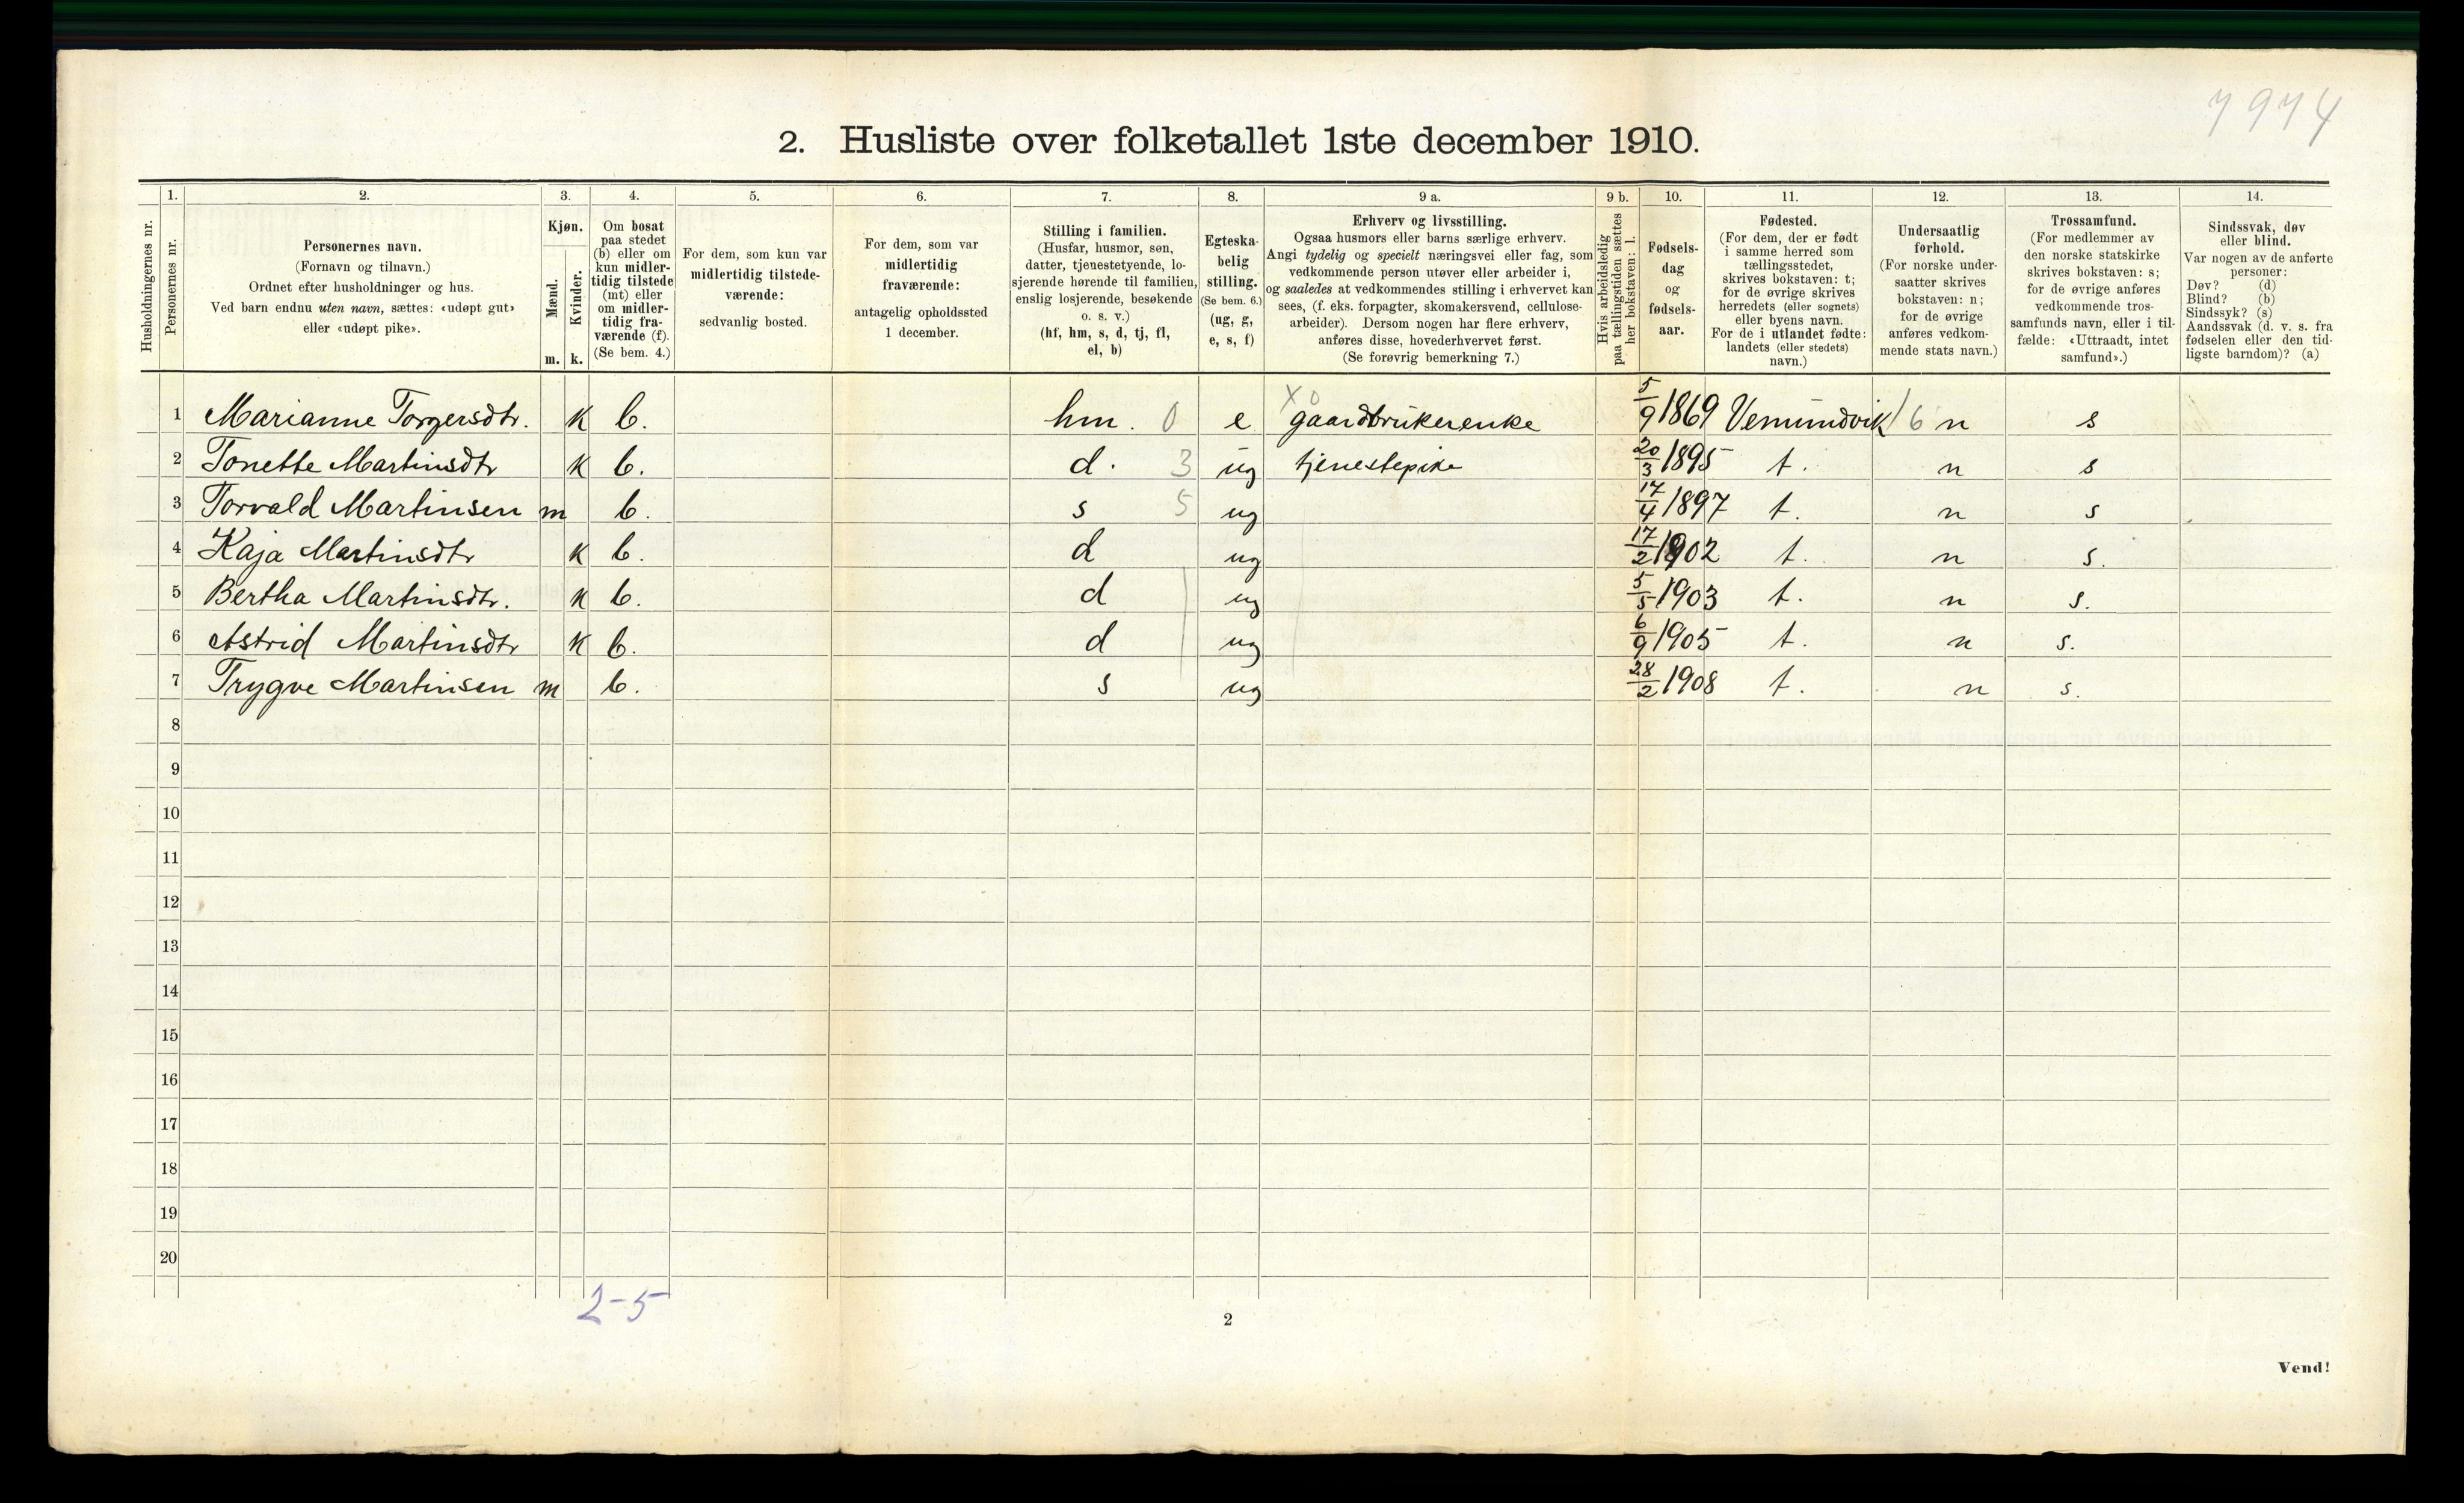 7974
2. Husliste over folketallet 1ste december 1910.
Husholdningernes nr.
1.
Personernes nr.
2.
Personernes navn.
(Fornavn og tilnavn.)
Ordnet efter husholdninger og hus.
Ved barn endnu uten navn, sættes: «udøpt gut»
eller «udøpt pike».
3.
Kjøn.
Mænd.
m.
Kvinder.
k.
4.
Om bosat
paa stedet
(b) eller om
kun midler-
tidig tilstede
(mt) eller
om midler-
tidig fra-
værende (f).
(Se bem. 4.)
5.
For dem, som kun var
midlertidig tilstede-
værende:
sedvanlig bosted.
6.
For dem, som var
midlertidig
fraværende:
antagelig opholdssted
1 december.
7.
Stilling i familien.
(Husfar, husmor, søn,
datter, tjenestetyende, lo-
sjerende hørende til familien,
enslig losjerende, besøkende
o. s. v.)
(hf, hm, s, d, tj, fl,
el, b)
8.
Egteska-
belig
stilling.
(Se bem. 6.)
(ug, g,
e, s, f)
9 a.
Erhverv og livsstilling.
Ogsaa husmors eller barns særlige erhverv.
Angi tydelig og specielt næringsvei eller fag, som
vedkommende person utøver eller arbeider i,
og saaledes at vedkommendes stilling i erhvervet kan
sees, (f. eks. forpagter, skomakersvend, cellulose-
arbeider). Dersom nogen har flere erhverv,
anføres disse, hovederhvervet først.
(Se forøvrig bemerkning 7.)
9 b.
Hvis arbeidsledig
paa tællingstiden sættes
her bokstaven: l.
10.
Fødsels-
dag
og
fødsels-
aar.
11.
Fødested.
(For dem, der er født
i samme herred som
tællingsstedet,
skrives bokstaven: t;
for de øvrige skrives
herredets (eller sognets)
eller byens navn.
For de i utlandet fødte:
landets (eller stedets)
navn.)
12.
Undersaatlig
forhold.
(For norske under-
saatter skrives
bokstaven: n;
for de øvrige
anføres vedkom-
mende stats navn.)
13.
Trossamfund.
(For medlemmer av
den norske statskirke
skrives bokstaven: s;
for de øvrige anføres
vedkommende tros-
samfunds navn, eller i til-
fælde: «Uttraadt, intet
samfund».)
14.
Sindssvak, døv
eller blind.
Var nogen av de anførte
personer:
Døv? (d)
Blind? (b)
Sindssyk? (s)
Aandssvak (d. v. s. fra
fødselen eller den tid-
ligste barndom)? (a)
1 Marianne Torgersdtr. k b. hm. 0 e x 0 gaardbrukerenke 5/9 1869 Vemundvik 16 n s
2 Tonette Martinsdtr k b. d. 3 ug tjenestepike 20/3 1895 t. n s
3 Torvald Martinsen m b. s 5 ug 17/4 1897 t. n s
4 Kaja Martinsdtr k b. d ug 17/2 1902 t. n s.
5 Bertha Martinsdtr. k b. d ug 5/5 1903 t. n s.
6 Astrid Martinsdtr k b. d ug 6/9 1905 t. n s.
7 Trygve Martinsen m b. s ug 28/2 1908 t. n s.
8
9
10
11
12
13
14
15
16
17
18
19
20
2-5
2
Vend!